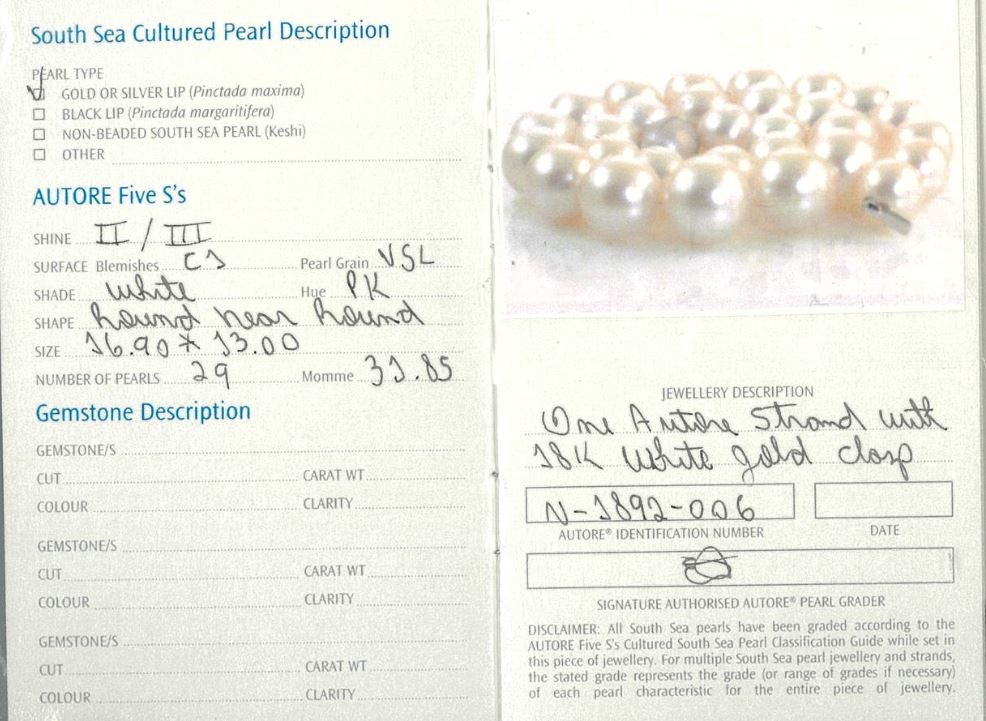 South Sea Cultured Pearl Description
PEARL TYPE
GOLD OR SILVER LIP (Pinctada maxima)
BLACK LIP (Pinctada margaritifera)
NON-BEADED SOUTH SEA PEARL (Keshi)
OTHER
AUTORE Five S's
SHINE II / III
SURFACE Blemishes C1 Pearl Grain VSL
SHADE white Hue PK
SHAPE Round near Round
SIZE 16.90 * 13.00
NUMBER OF PEARLS 29 Momme 31.85
Gemstone Description
GEMSTONE/S
CUT CARAT WT
COLOUR CLARITY
GEMSTONE/S
CUT CARAT WT
COLOUR CLARITY
GEMSTONE/S
CUT CARAT WT
COLOUR CLARITY
JEWELLERY DESCRIPTION
One Autore Strand with
18K White gold clasp
N-1892-006
AUTORE® IDENTIFICATION NUMBER DATE
SIGNATURE AUTHORISED AUTORE® PEARL GRADER
DISCLAIMER: All South Sea pearls have been graded according to the
AUTORE Five S's Cultured South Sea Pearl Classification Guide while set in
this piece of jewellery. For multiple South Sea pearl jewellery and strands,
the stated grade represents the grade (or range of grades if necessary)
of each pearl characteristic for the entire piece of jewellery.